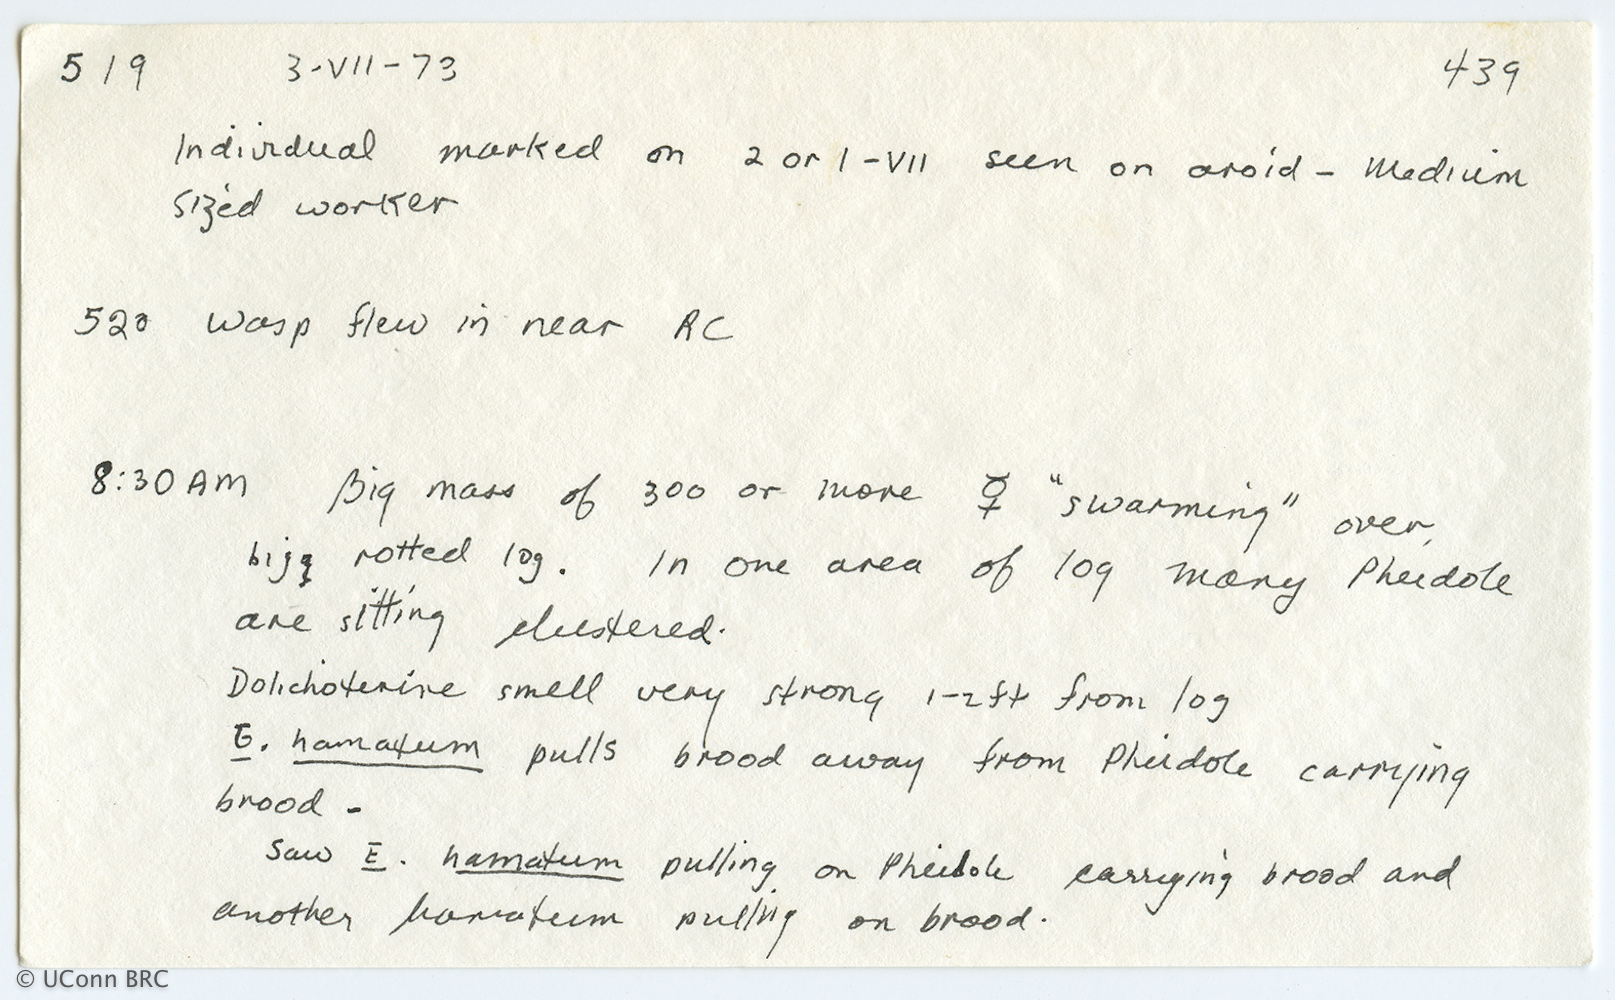 519 3-VII-73 439
Individual marked on 2 or 1-VII seen on aroid - Medium
sized worker
520 Wasp flew in near RC
8:30 AM Big mass of 300 or more ☿ "swarming" over
bigg rotted log. In one area of log many Pheidole
are sitting clustered.
Dolichoterine smell very strong 1-2ft from log
E. hamatum pulls brood away from Pheidole carrying
brood -
Saw E. hamatum pulling on Pheidole carrying brood and
another hamatum pulling on brood.
© UConn BRC